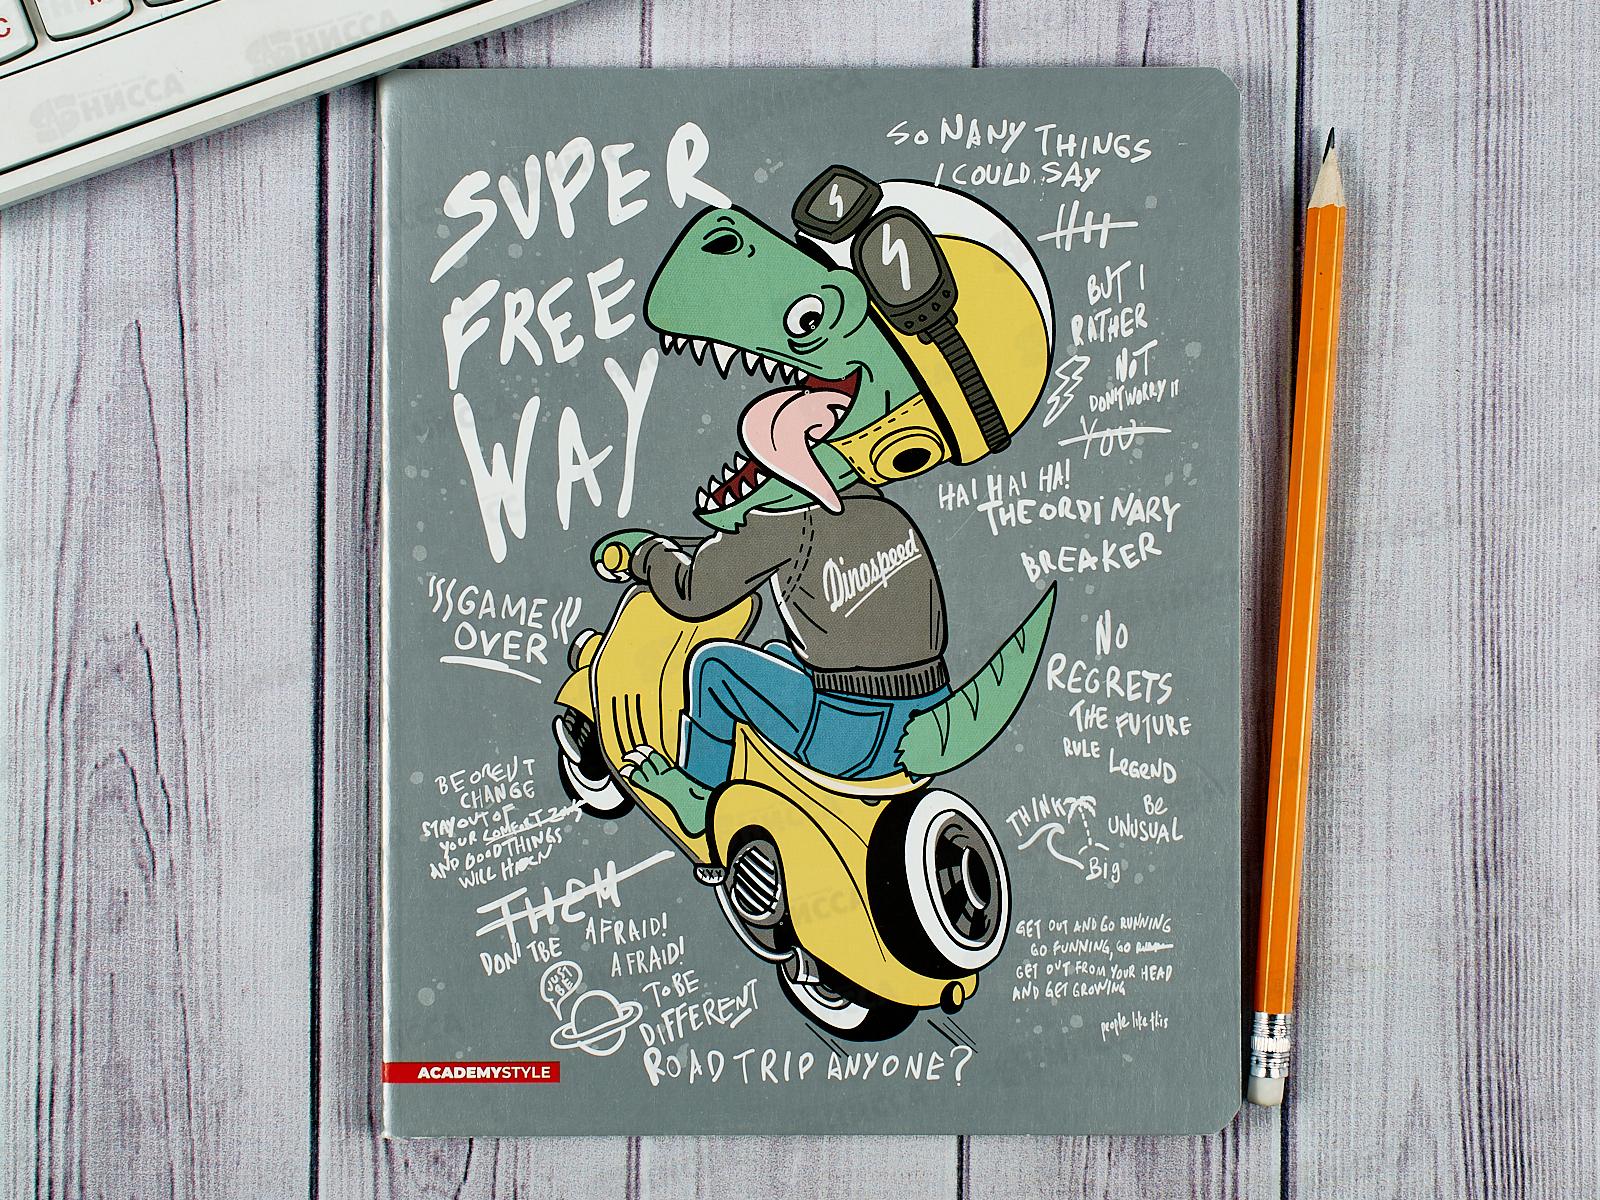 SUPER
FREE
WAY
SO NANY THINGS
I COULD SAY
BUT I
RATHER
NOT
DON'T WORRY IT
YOU
HA! HA! HA!
THE ORDINARY
BREAKER
Dinospeed
GAME
OVER
NO
REGRETS
THE FUTURE
RULE LEGEND
THINK
Big
BE
UNUSUAL
CHANGE
STAY OUT OF
YOUR COMFORT
AND GOOD THINGS
WILL
THEM
DON'T BE AFRAID!
AFRAID!
JUST
BE
TO BE
DIFFERENT
ROAD TRIP ANYONE?
GET OUT AND GO RUNNING
GO FUNNING, GO
GET OUT FROM YOUR HEAD
AND GET GROWING
people like this
ACADEMYSTYLE
НИССА
НИССА